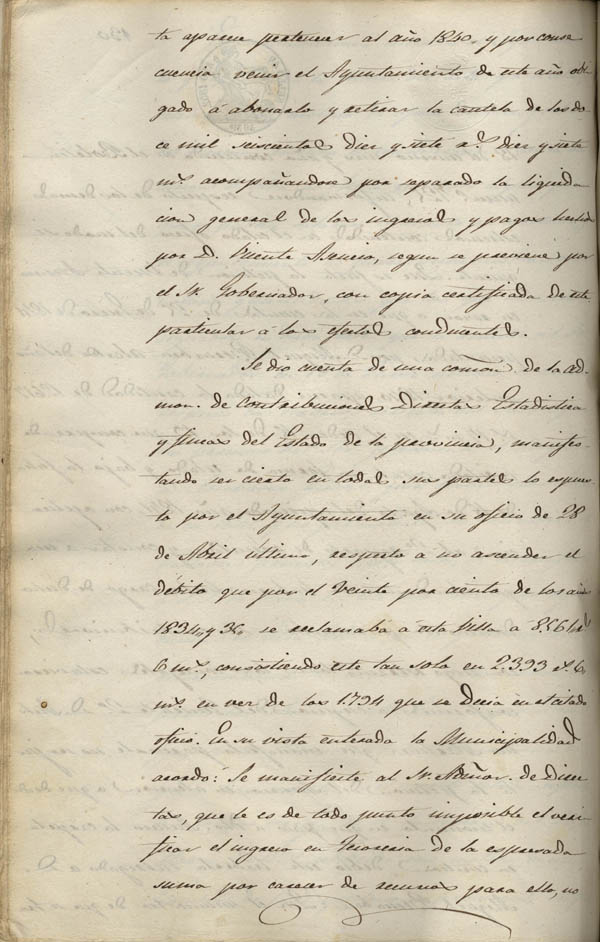 ta aparece pertenecer al año 1840, y por conse
cuencia venir el Ayuntamiento de este año obli
gado á abonarlo y retirar la cautela de los do
ce mil seiscientos diez y siete r.s diez y siete
m.s acompañandose por separado la liquida
cion general de los ingresos y pagos hechos
por D. Vicente Asencio, segun se previene por
el Sr. Gobernador, con copia certificada de este
particular á los efectos conducentes.
Se dio cuenta de una comon. de la ad-
mon. de contribuciones Directas Estadistica
y fincas del Estado de la provincia, manifes-
tando ser cierto en todas sus partes lo espues
to por el Ayuntamiento en su oficio de 28
de Abril último, respecto a no ascender el
débito que por el Veinte por ciento de los años
1834, y 36, se reclamaba á esta Villa a
6 m.s, consistiendo este tan solo en 2393 r.s 6
m.s en vez de los 1794 que se decia en el citado
oficio. En su vista enterada la Municipalidad
acordó: Se manifieste al Sr. Admor. de Direc
tas, que le es de todo punto imposible el veri
ficar el ingreso en Tesoreria de la espresada
suma por carecer de recursos para ello, no